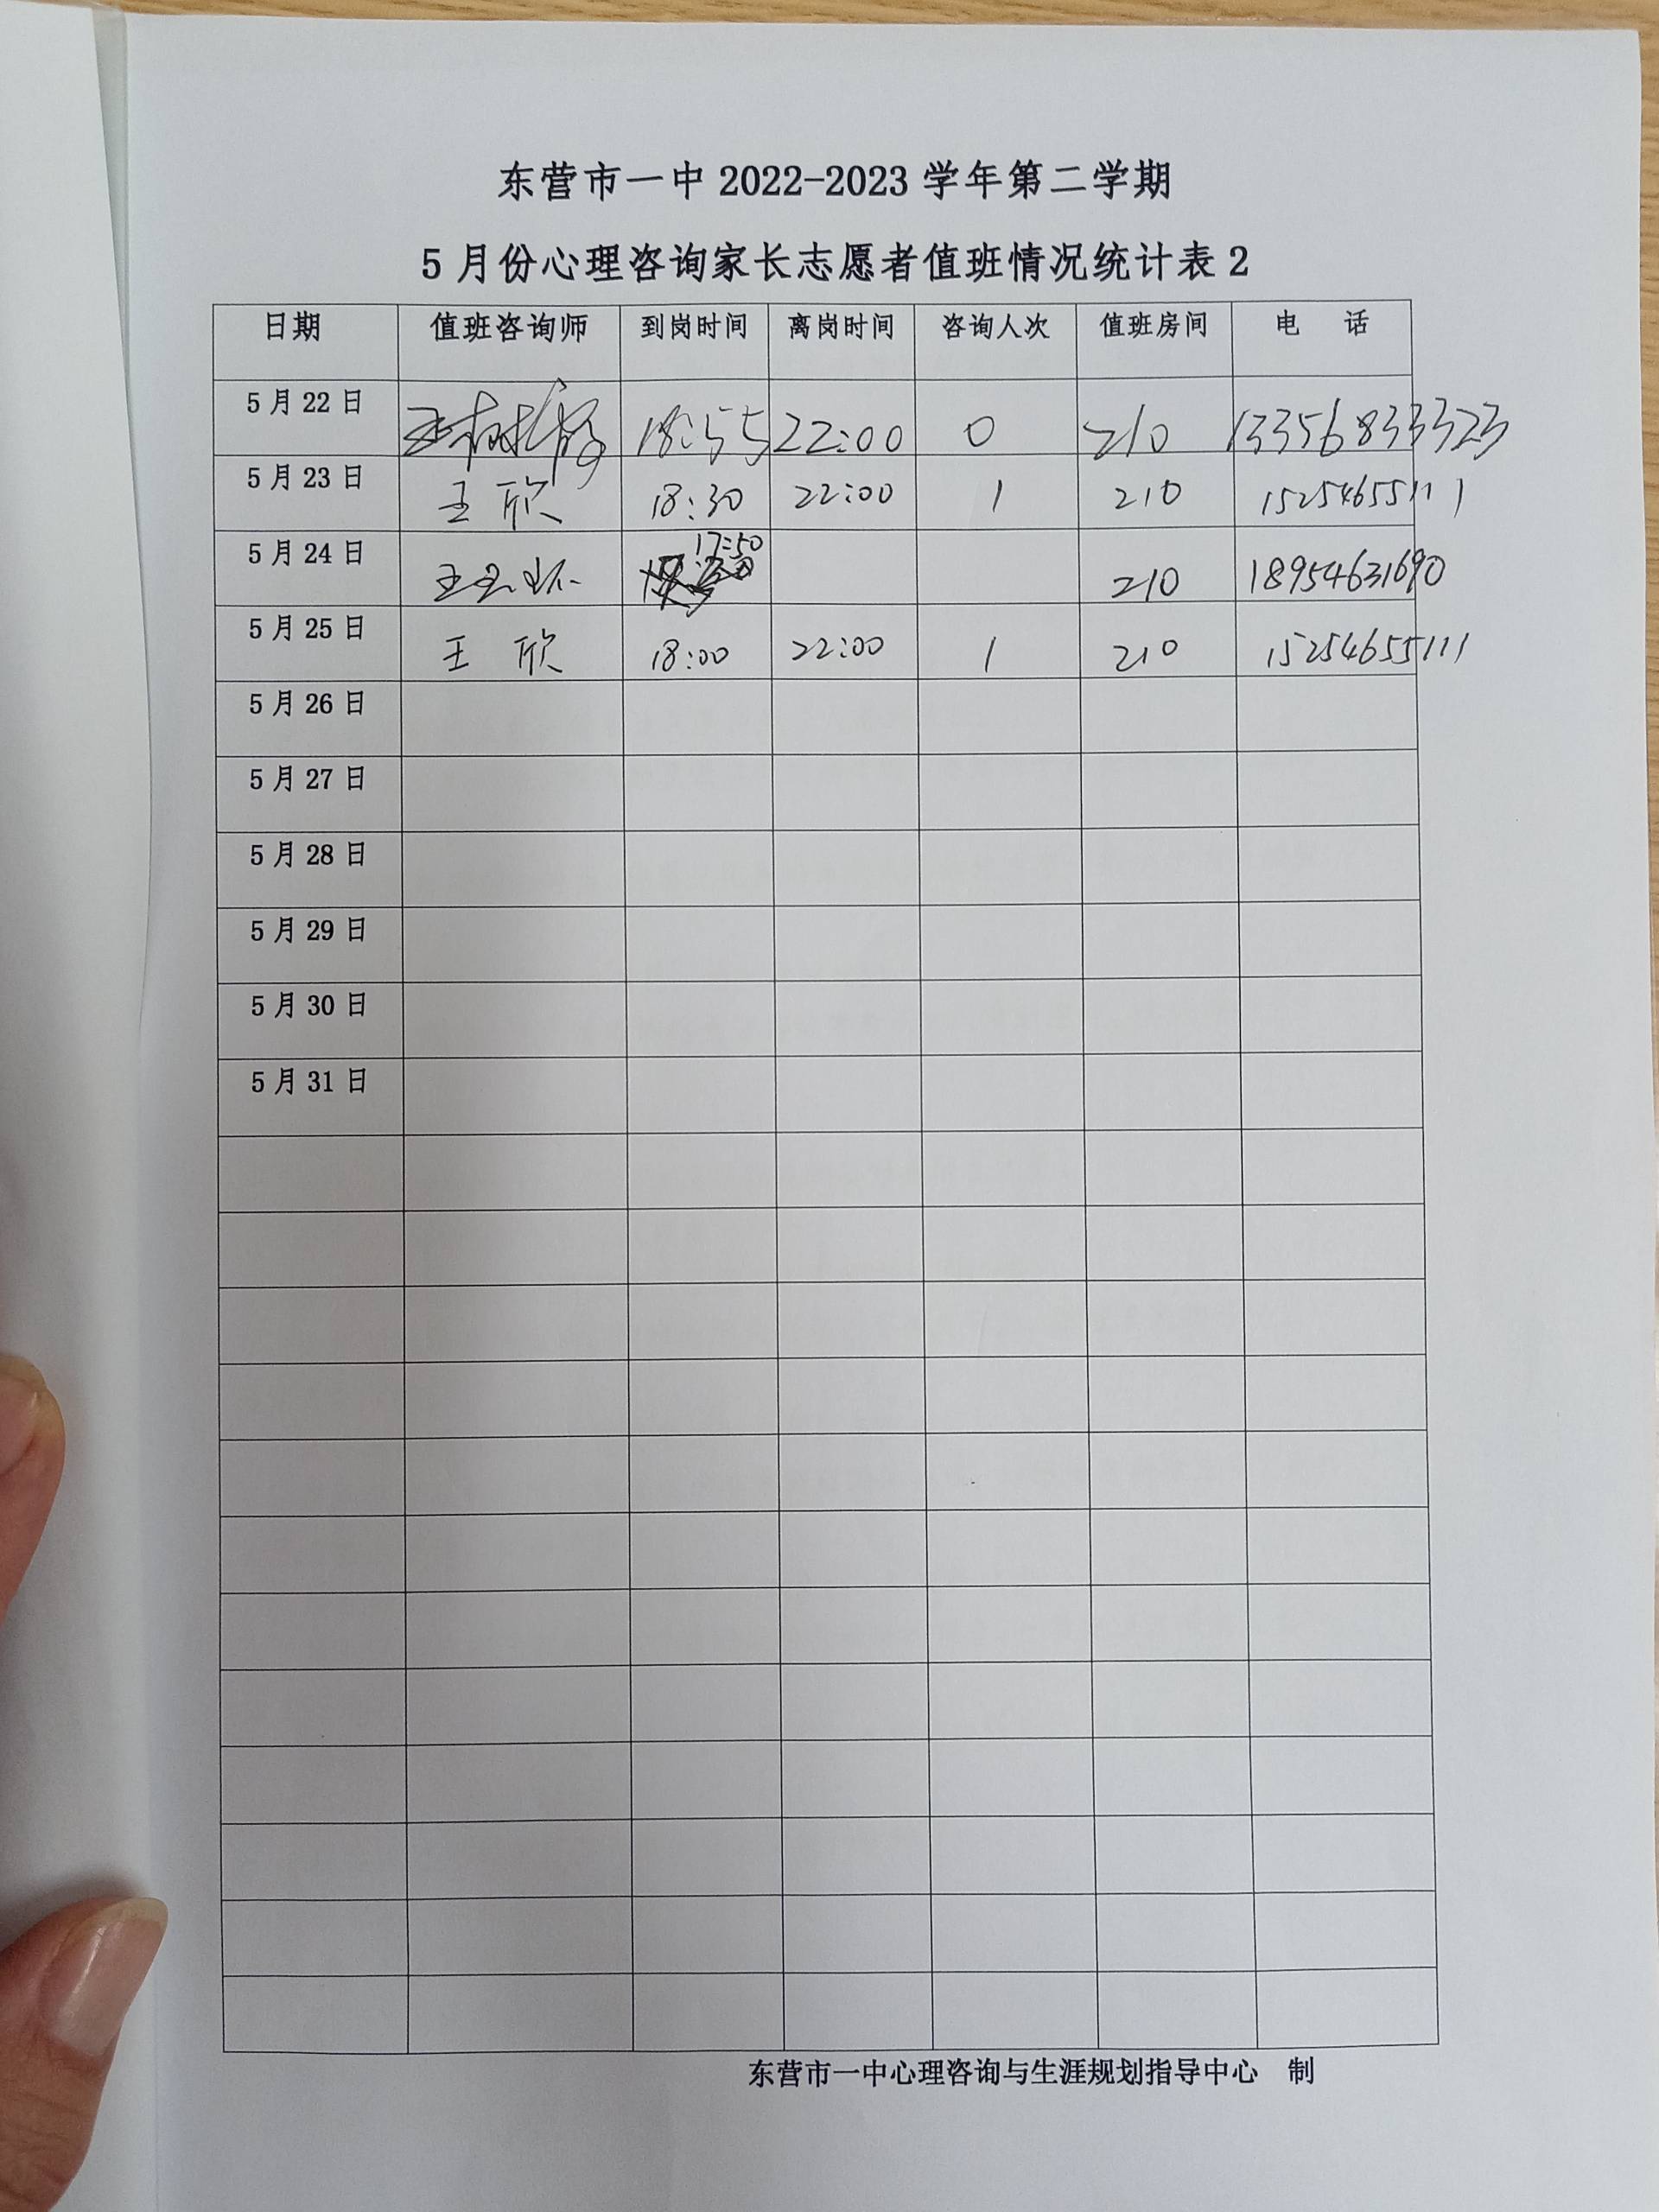 东营市一中 2022-2023 学年第二学期
5 月份心理咨询家长志愿者值班情况统计表 2
日期 值班咨询师 到岗时间 离岗时间 咨询人次 值班房间 电 话
5 月 22 日 18:55 22:00 0 210 13356833323
5 月 23 日 王 欣 18:30 22:00 1 210 15254655111
5 月 24 日 17:50 210 18954631690
5 月 25 日 王 欣 18:00 22:00 1 210 15254655111
5 月 26 日
5 月 27 日
5 月 28 日
5 月 29 日
5 月 30 日
5 月 31 日
东营市一中心理咨询与生涯规划指导中心 制